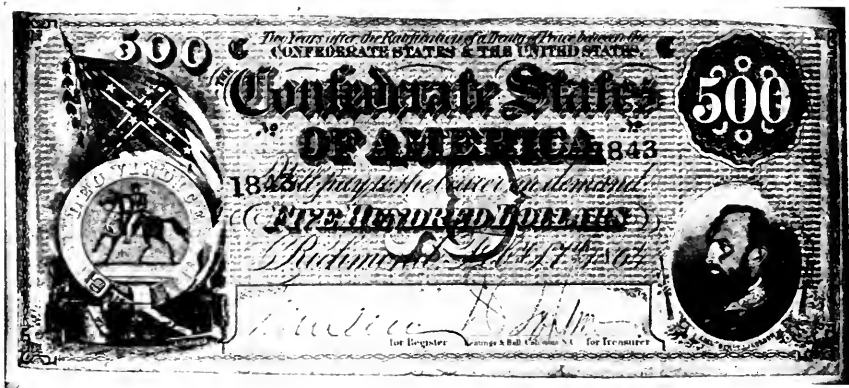 500
C Two Years after the Ratification of a Treaty of Peace between the C
CONFEDERATE STATES & THE UNITED STATES,
Confederate States
500
OF AMERICA
1843
1843
Will pay to the bearer on demand
FIVE HUNDRED DOLLARS
Richmond Feb. 17th 1864
for Register Keatinge & Ball, Columbia, S.C. for Treasurer